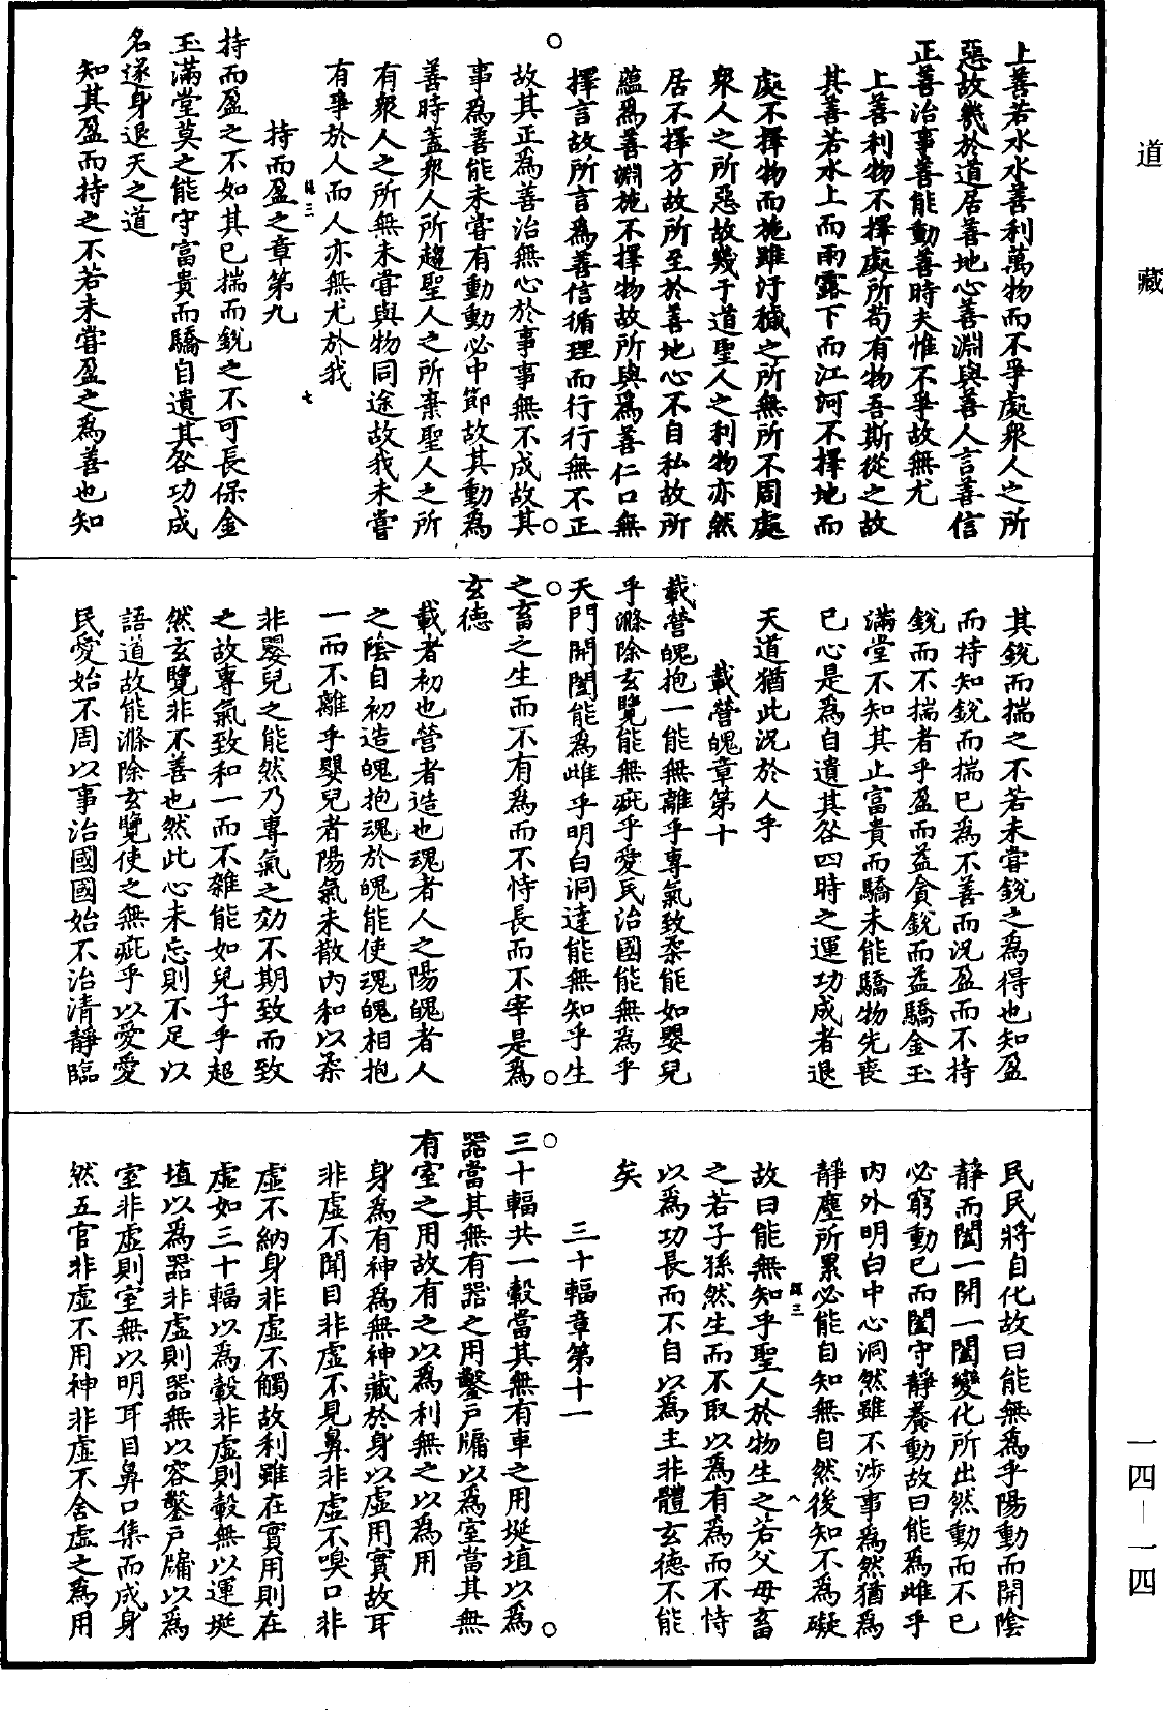 道藏
上善若水水善利萬物而不爭處衆人之所
惡故幾於道居善地心善淵與善人言善信
正善治事善能動善時夫惟不爭故無尤
上善利物不擇處所苟有物吾斯從之故
其善若水上而雨露下而江河不擇地而
處不擇物而施雖汙穢之所無所不周處
衆人之所惡故幾于道聖人之利物亦然
居不擇方故所至於善地心不自私故所
蘊爲善淵施不擇物故所與爲善仁口無
擇言故所言爲善信循理而行行無不正
故其正爲善治無心於事事無不成故其
事爲善能未甞有動動必中節故其動爲
善時蓋衆人所趨聖人之所棄聖人之所
有衆人之所無未甞與物同途故我未甞
有事於人而人亦無尤於我
七
持而盈之章第九
持而盈之不如其已揣而銳之不可長保金
玉滿堂莫之能守富貴而驕自遺其咎功成
名遂身退天之道
知其盈而持之不若未甞盈之爲善也知
其銳而揣之不若未甞銳之爲得也知盈
而持知銳而揣已爲不善而況盈而不持
銳而不揣者乎盈而益貪銳而益驕金玉
滿堂不知其止富貴而驕未能驕物先喪
已心是爲自遺其咎四時之運功成者退
天道猶此況於人乎
載營魄章第十
載營魄抱一能無離乎專氣致柔能如嬰兒
乎滌除玄覽能無疵乎愛民治國能無爲乎
天門開闔能爲雌乎明白洞達能無知乎生
之畜之生而不有爲而不恃長而不宰是爲
玄德
載者初也營者造也魂者人之陽魄者人
之陰自初造魄抱魂於魄能使魂魄相抱
一而不離乎嬰兒者陽氣未散內和以柔
非嬰兒之能然乃專氣之効不期致而致
之故專氣致和一而不雜能如兒子乎超
然玄覽非不善也然此心未忘則不足以
語道故能滌除玄覽使之無疵乎以愛愛
民愛始不周以事治國國始不治清靜臨
民民將自化故曰能無爲乎陽動而開陰
靜而闔一開一闔變化所出然動而不已
必窮動已而闔守靜養動故曰能爲雌乎
內外明白中心洞然雖不涉事爲然猶爲
靜塵所累必能自知無自然後知不爲礙
八
故曰能無知乎聖人於物生之若父母畜
之若子孫然生而不取以爲有爲而不恃
以爲功長而不自以爲主非體玄德不能
矣
三十輻章第十一
三十輻共一轂當其無有車之用埏埴以爲
器當其無有器之用鑿戶牖以爲室當其無
有室之用故有之以爲利無之以爲用
身爲有神爲無神藏於身以虛用實故耳
非虛不聞目非虛不見鼻非虛不嗅口非
虛不納身非虛不觸故利雖在實用則在
虛如三十輻以爲轂非虛則轂無以運埏
埴以爲器非虛則器無以容鑿戶牖以爲
室非虛則室無以明耳目鼻口集而成身
然五官非虛不用神非虛不舍虛之爲用
一四—一四